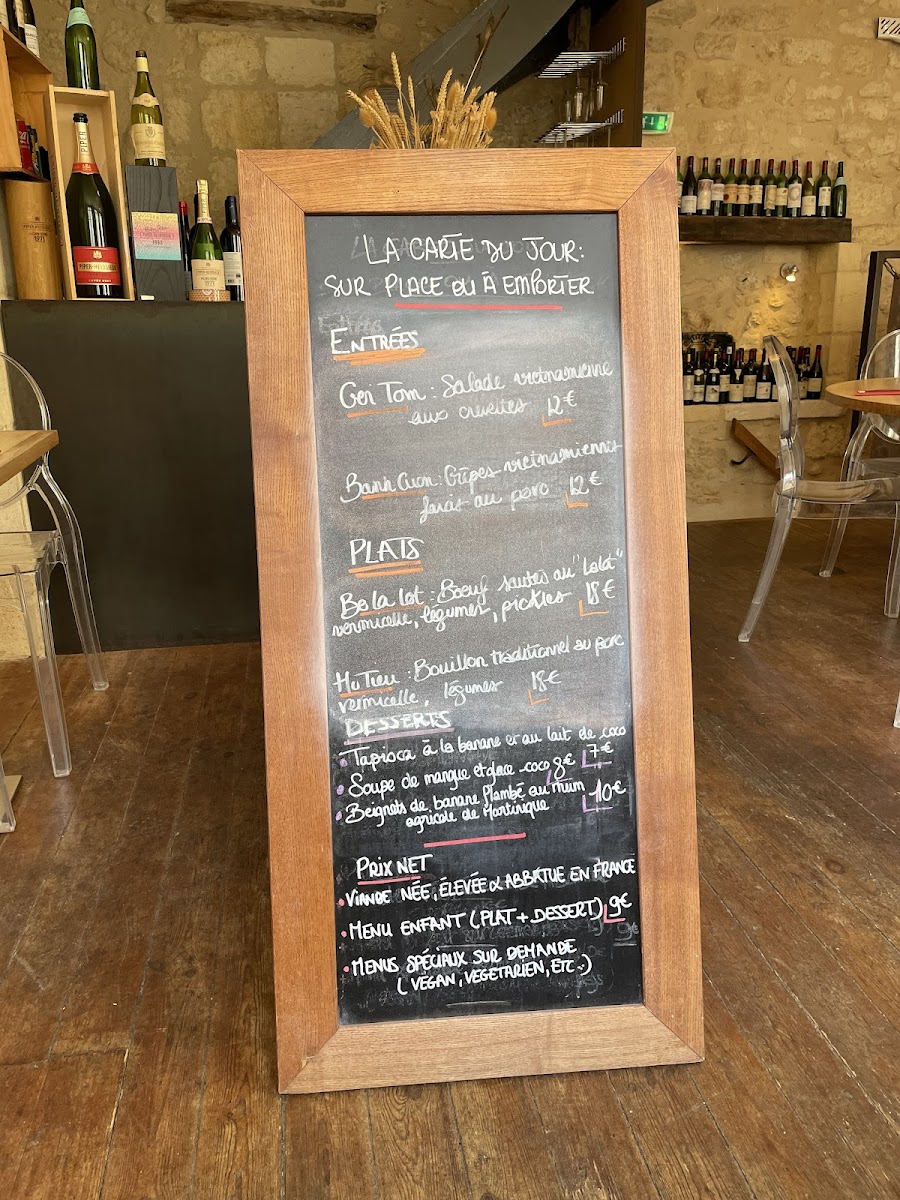 LA CARTE DU JOUR:
SUR PLACE OU À EMPORTER
ENTRÉES
Goi Tom : Salade vietnamienne
aux crevettes 12€
Banh Cuon : Crêpes vietnamiennes
farcis au porc 12€
PLATS
Bo la lot : Boeuf sautés au "Lolot"
vermicelle, légumes, pickles 18€
Hu Tieu : Bouillon traditionnel au porc
vermicelle, légumes 18€
DESSERTS
• Tapioca à la banane et au lait de coco
7€
• Soupe de mangue et glace-coco 8€
• Beignets de banane flambé au rhum
agricole de Martinique 10€
PRIX NET
• VIANDE NÉE, ÉLEVÉE & ABBATUE EN FRANCE
• MENU ENFANT (PLAT + DESSERT) 9€
• MENUS SPÉCIAUX SUR DEMANDE
(VEGAN, VEGETARIEN, ETC..)
PIPER
PIPER-HEIDSIECK